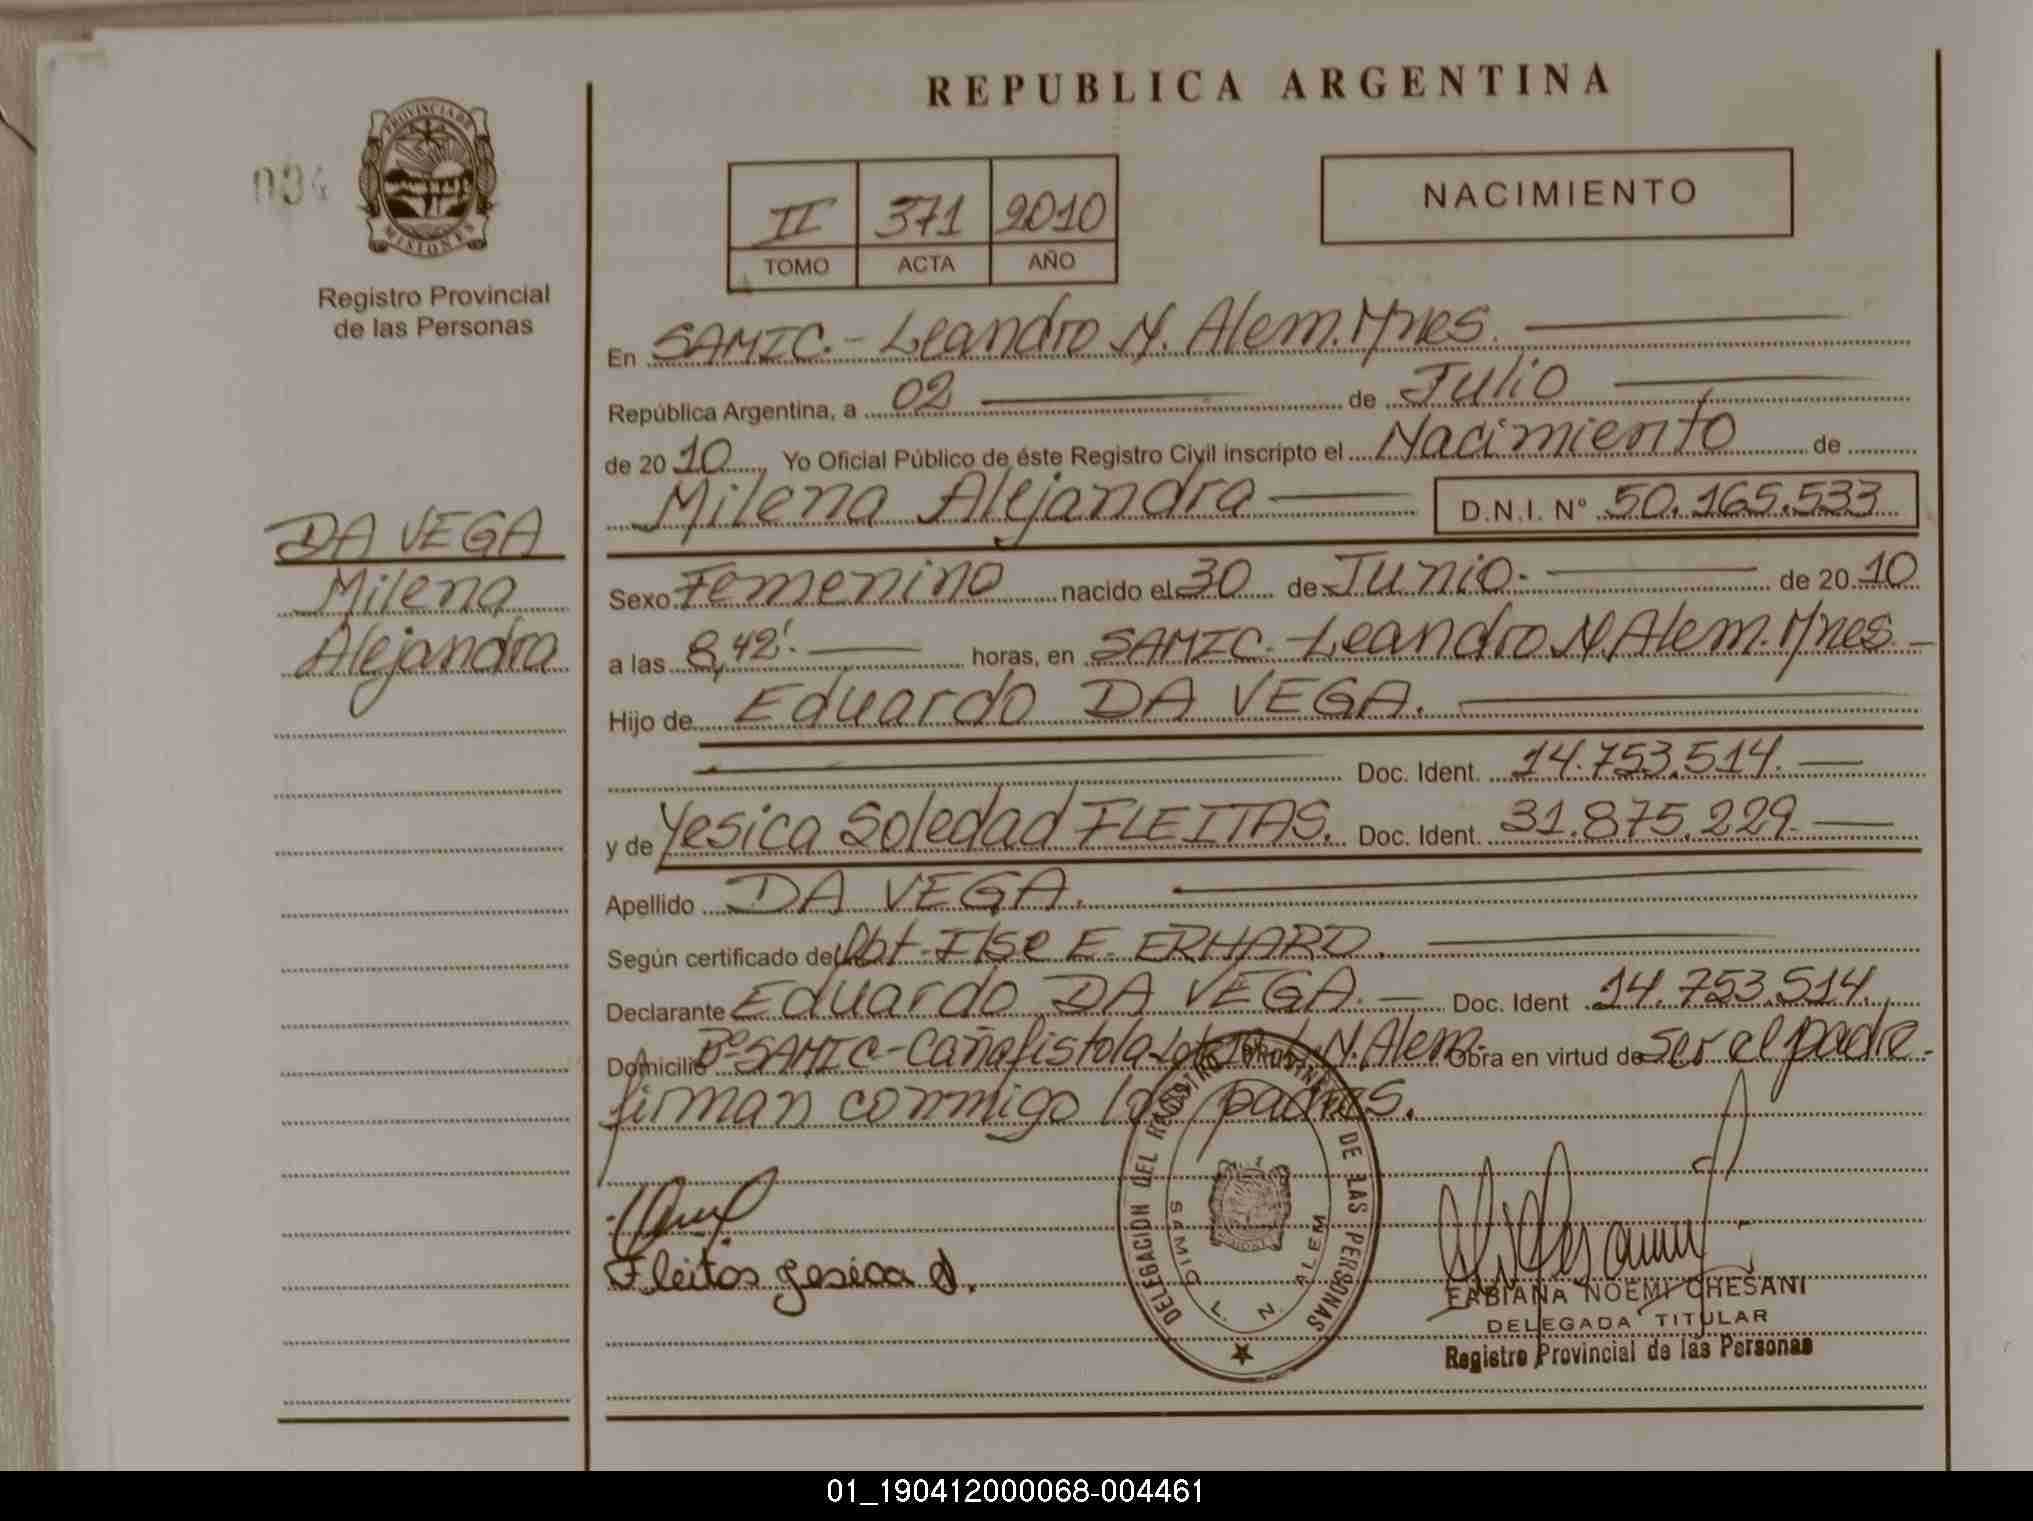 REPUBLICA ARGENTINA
PROVINCIA DE
MISIONES
034
Registro Provincial
de las Personas
II 371 2010
TOMO ACTA AÑO
NACIMIENTO
DA VEGA
Milena
Alejandra
En SAMIC.- Leandro N. Alem. Mnes.
República Argentina, a 02 de Julio
de 20 10 Yo Oficial Público de éste Registro Civil inscripto el Nacimiento de
Milena Alejandra D.N.I. N° 50.165.533
Sexo Femenino nacido el 30 de Junio. de 20 10
a las 8,42'. horas, en SAMIC.-Leandro N. Alem. Mnes.
Hijo de Eduardo DA VEGA.
Doc. Ident. 14.753.514.
y de Yesica Soledad FLEITAS. Doc. Ident. 31.875.229.
Apellido DA VEGA.
Según certificado de Obt. Ilse E. ERHARD.
Declarante Eduardo DA VEGA. Doc. Ident 14.753.514.
Domicilio B° SAMIC-Cañafistola N. Alem. Obra en virtud de ser el padre.
firman conmigo los padres.
Fleitas Jesica S.
DELEGACION DEL REGISTRO PROVINCIAL DE LAS PERSONAS
SAMIC L. N. ALEM
FABIANA NOEMI CHESANI
DELEGADA TITULAR
Registro Provincial de las Personas
01_190412000068-004461